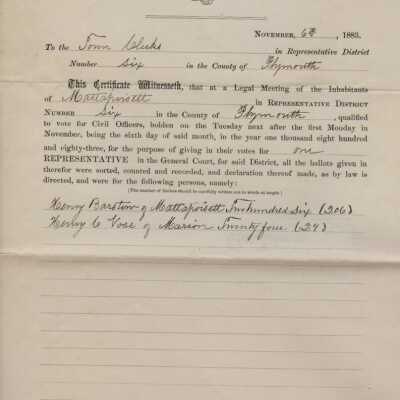 NOVEMBER, 6th, 1883.
To the Town Clerks in Representative District
Number Six in the County of Plymouth
This Certificate Witnesseth, that at a Legal Meeting of the Inhabitants
of Mattapoisett in REPRESENTATIVE DISTRICT
NUMBER Six in the County of Plymouth, qualified
to vote for Civil Officers, holden on the Tuesday next after the first Monday in
November, being the sixth day of said month, in the year one thousand eight hundred
and eighty-three, for the purpose of giving in their votes for one
REPRESENTATIVE in the General Court, for said District, all the ballots given in
therefor were sorted, counted and recorded, and declaration thereof made, as by law is
directed, and were for the following persons, namely:
[The number of Ballots should be carefully written out in words at length.]
Henry Barstow of Mattapoisett Two hundred six (206)
Henry C Vose of Marion Twenty four (24)